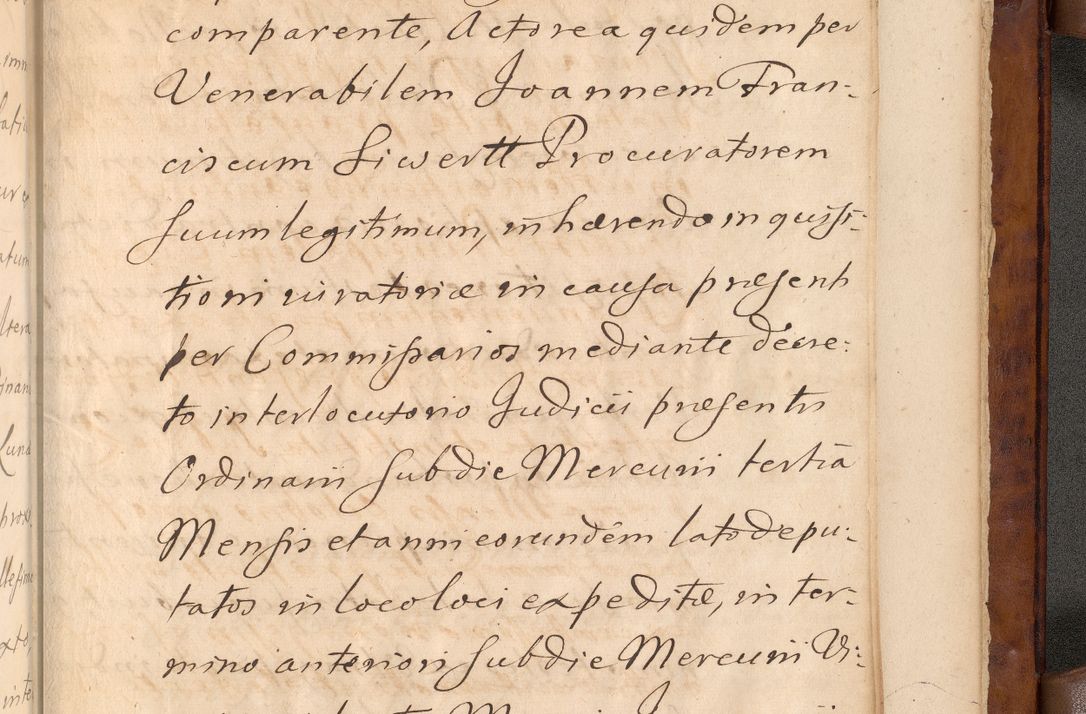 comparente, Actorea quidem per
Venerabilem Joannem Fran-
ciscum Siwertt Procuratorem
suum legitimum, inhærendo inquisi-
tioni juratoriæ in causa præsenti
per Commissarios mediante decre-
to interlocutorio Judicii præsentis
Ordinarii sub die Mercurii tertia
Mensis et anni eorundem lato depu-
tatos in loco loci expeditæ, in ter-
mino anteriori sub die Mercurii Vi-